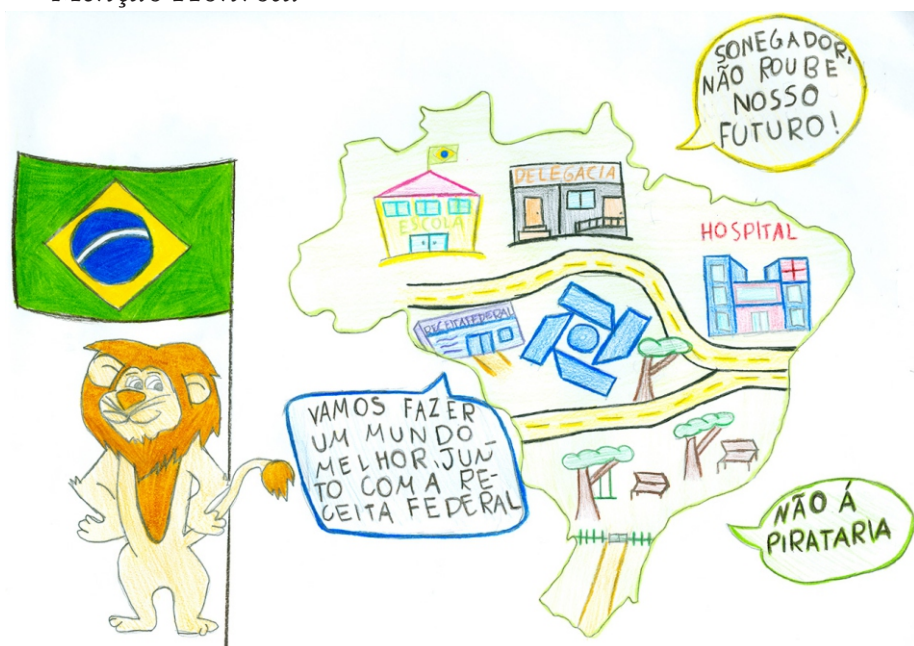 Menção Honrosa
SONEGADOR,
NÃO ROUBE
NOSSO
FUTURO!
DELEGACIA
ESCOLA
HOSPITAL
RECEITA FEDERAL
VAMOS FAZER
UM MUNDO
MELHOR, JUN_
TO COM A RE-
CEITA FEDERAL
NÃO Á
PIRATARIA